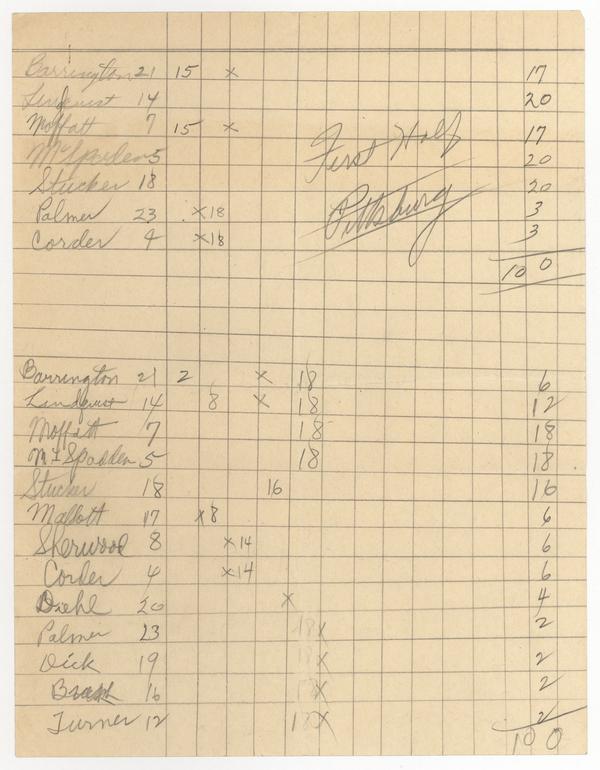 Barrington 21 15 x 17
Lindquist 14 20
Moffatt 7 15 x 17
First Half
McSpadden 5 20
Stucker 18 20
Palmer 23 x 18 3
Pittsburg
Corder 4 x 18 3
10 0
Barrington 21 2 x 18 6
Landquist 14 8 x 18 12
Moffatt 7 18 18
McSpadden 5 18 18
Stucker 18 16 16
Mallott 17 x 8 6
Sherwood 8 x 14 6
Corder 4 x 14 6
Diehl 20 x 4
Palmer 23 18 x 2
Dick 19 18 x 2
16 x 2
Turner 12 18 x 2
10 0